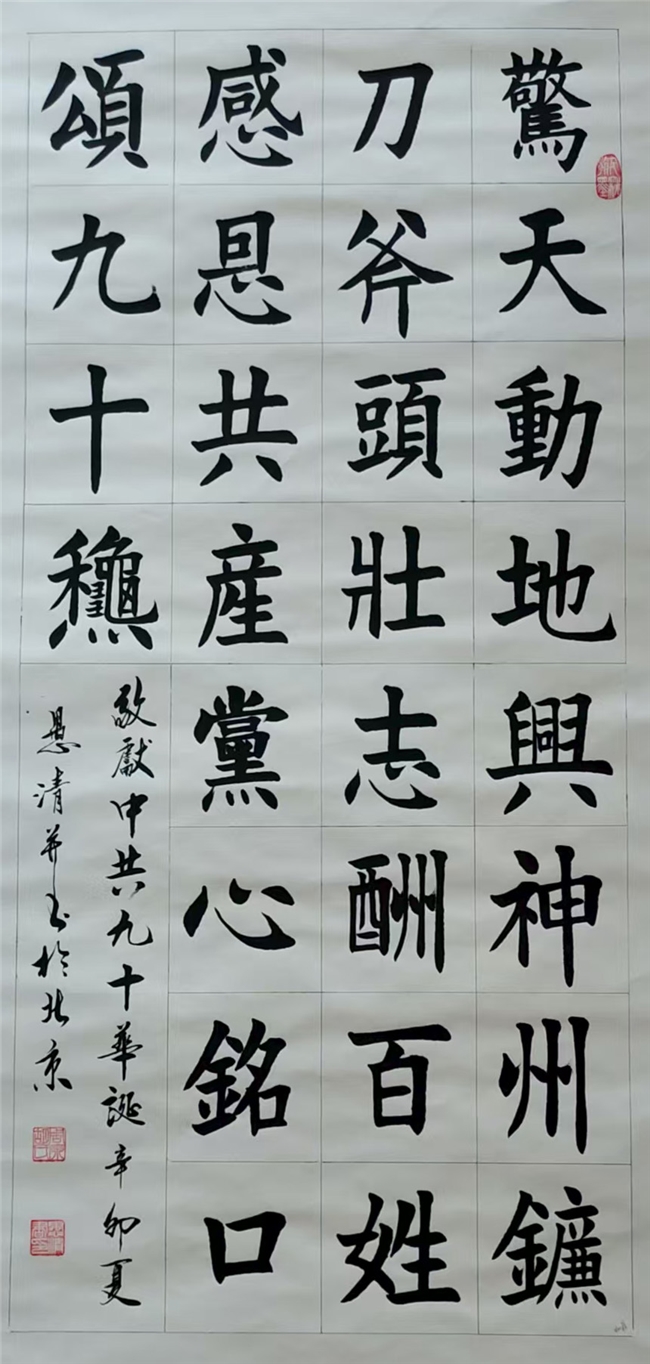 驚天動地興神州鐮
刀斧頭壯志酬百姓
感恩共産黨心銘口
頌九十龝
敬獻中共九十華誕辛卯夏
恩清并书於北京